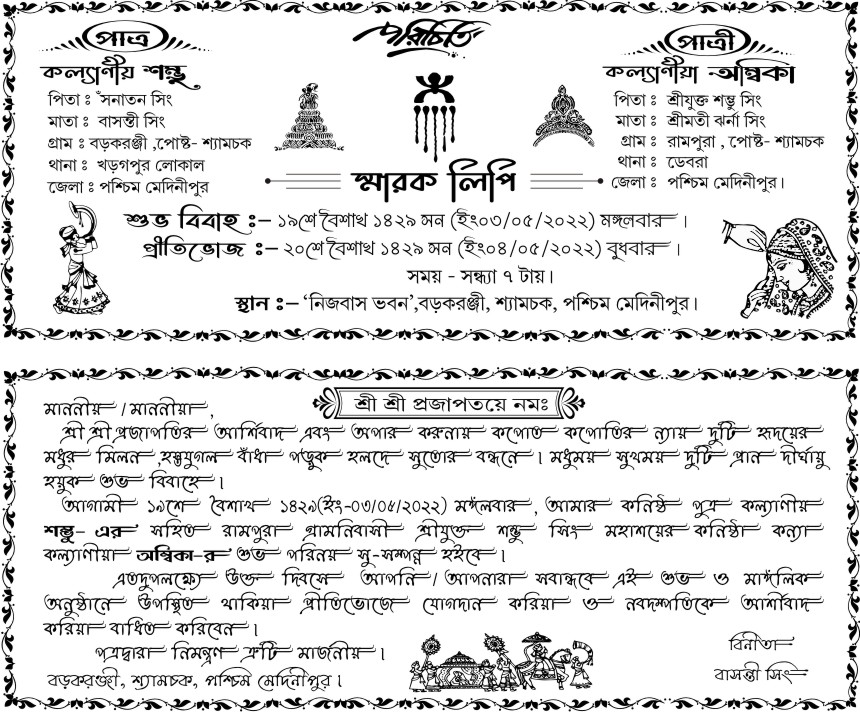 পরিচিতি
পাত্র
কল্যাণীয় শম্ভু
পিতা ঃ সনাতন সিং
মাতা ঃ বাসন্তী সিং
গ্রাম ঃ বড়করঞ্জী ,পোষ্ট- শ্যামচক
থানা ঃ খড়গপুর লোকাল
জেলা ঃ পশ্চিম মেদিনীপুর
পাত্রী
কল্যাণীয়া অম্বিকা
পিতা ঃ শ্রীযুক্ত শম্ভু সিং
মাতা ঃ শ্রীমতী ঝর্না সিং
গ্রাম ঃ রামপুরা , পোষ্ট- শ্যামচক
থানা ঃ ডেবরা
জেলা ঃ পশ্চিম মেদিনীপুর।
স্মারক লিপি
শুভ বিবাহ ঃ– ১৯শে বৈশাখ ১৪২৯ সন (ইং০৩/০৫/২০২২) মঙ্গলবার ।
প্রীতিভোজ ঃ– ২০শে বৈশাখ ১৪২৯ সন (ইং০৪/০৫/২০২২) বুধবার ।
সময় - সন্ধ্যা ৭ টায়।
স্থান ঃ– ‘নিজবাস ভবন’,বড়করঞ্জী, শ্যামচক, পশ্চিম মেদিনীপুর।
শ্রী শ্রী প্রজাপতয়ে নমঃ
মাননীয় / মাননীয়া ,
শ্রী শ্রী প্রজাপতির আর্শিবাদ এবং অপার করুনায় কপোত কপোতির ন্যায় দুটি হৃদয়ের
মধুর মিলন হস্তযুগল বাঁধা পড়ুক হলদে সুতোর বন্ধনে । মধুময় সুখময় দুটি প্রান দীর্ঘায়ু
হয়ুক শুভ বিবাহে ।
আগামী ১৯শে বৈশাখ ১৪২৯(ইং-০৩/০৫/২০২২) মঙ্গলবার , আমার কনিষ্ঠ পুত্র কল্যাণীয়
শম্ভু- এর সহিত রামপুরা গ্রামনিবাসী শ্রীযুক্ত শম্ভু সিং মহাশয়ের কনিষ্ঠা কন্যা
কল্যাণীয়া অম্বিকা-র শুভ পরিনয় সু-সম্পন্ন হইবে ।
এতদুপলক্ষ্যে উক্ত দিবসে আপনি / আপনারা সবান্ধবে এই শুভ ও মাঙ্গলিক
অনুষ্ঠানে উপস্থিত থাকিয়া প্রীতিভোজে যোগদান করিয়া ও নবদম্পতিকে আর্শীবাদ
করিয়া বাধিত করিবেন ।
পত্রদ্বারা নিমন্ত্রণ ত্রুটি মার্জনীয় ।
বড়করঞ্জী, শ্যামচক, পশ্চিম মেদিনীপুর ।
বিনীতা
বাসন্তী সিং